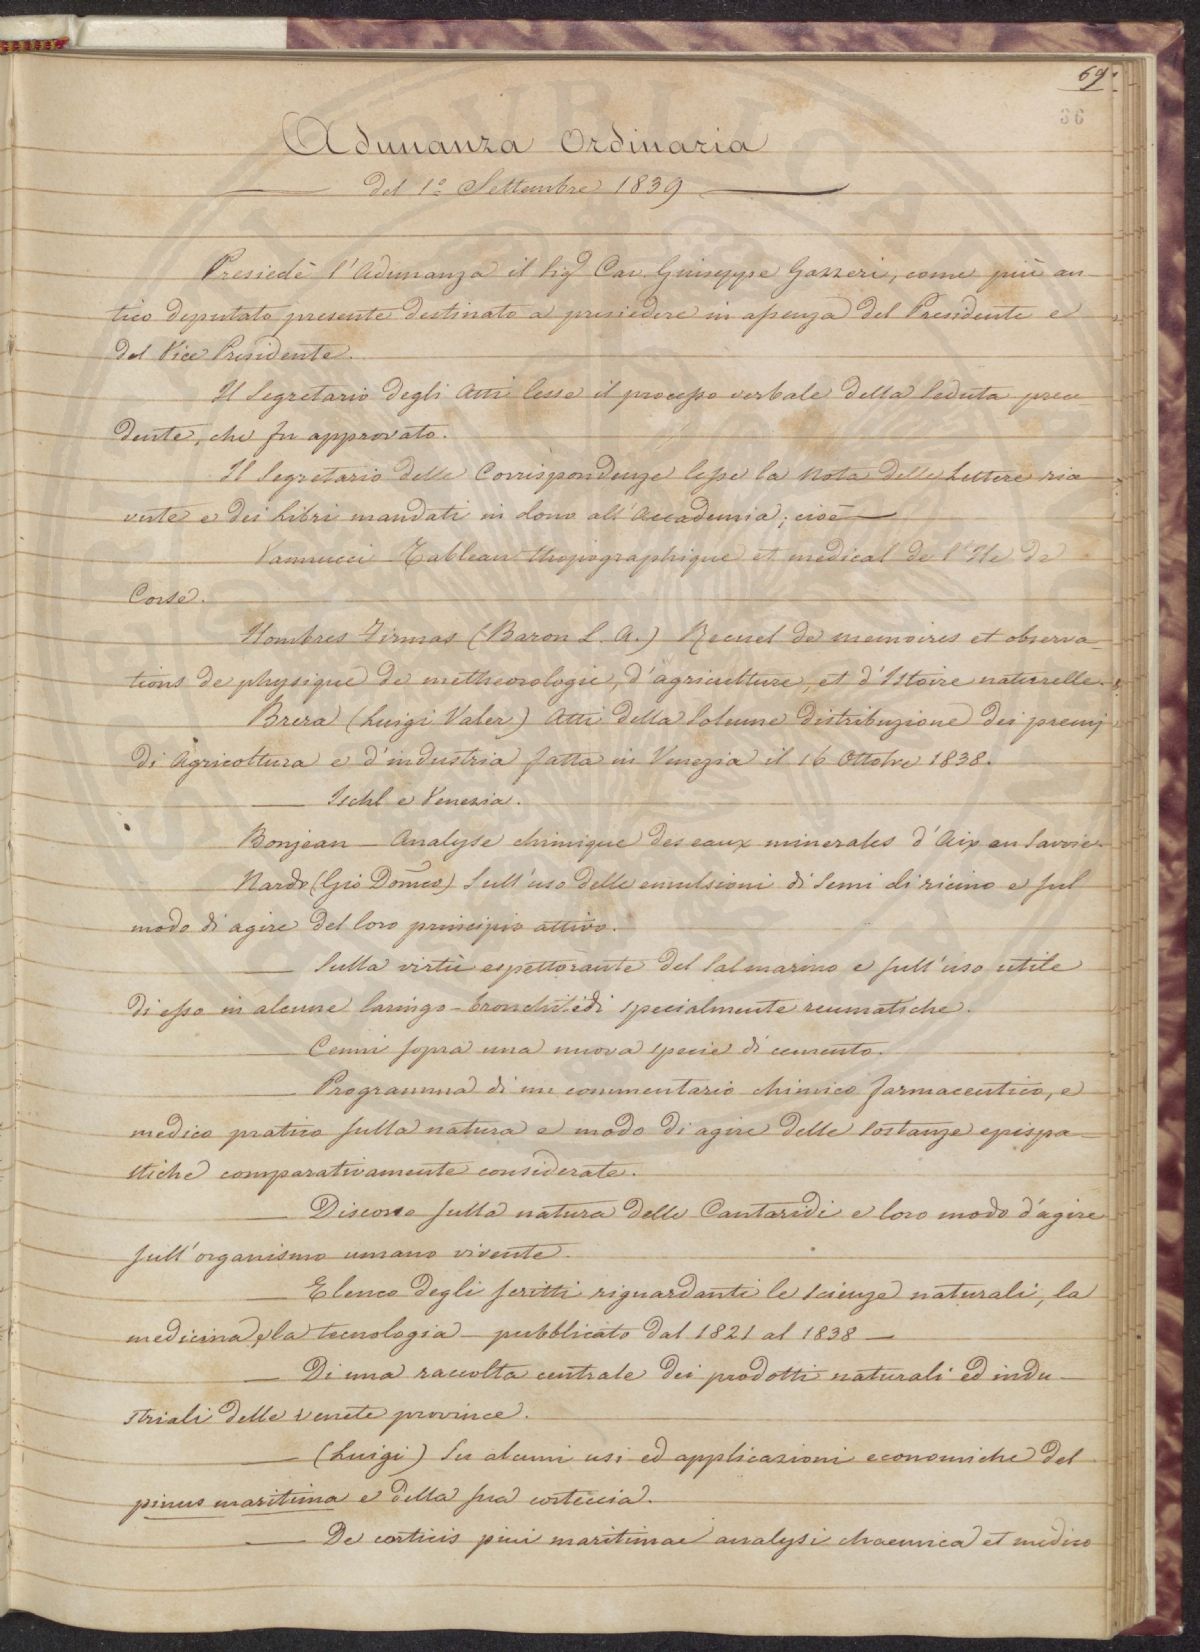 69.
36
Adunanza Ordinaria
del 1º Settembre 1839
Presiedè l'Adunanza il Sigr Cav. Giuseppe Gazzeri, come più an-
tico deputato presente destinato a presiedere in assenza del Presidente e
del Vice Presidente.
Il Segretario degli Atti lesse il processo verbale della Seduta prece-
dente, che fu approvato.
Il Segretario delle Corrispondenze lesse la Nota delle Lettere rice
vute e dei Libri mandati in dono all'Accademia; cioè —
Vannucci Tableau thopographique et medical de l'Ile de
Corse.
Hombres Firmas (Baron L. A.) Recuel de memoires et observa-
tions de physique de metheorologie, d'agriculture, et d'Istoire naturelle.
Brera (Luigi Valer) Atti della Solenne distribuzione dei premj
di Agricoltura e d'industria fatta in Venezia il 16 Ottobre 1838.
— Ischl e Venezia.
Bonjean — Analyse chimique des eaux minerales d'Aix en Savoie.
Nardo (Gio Domco) Sull'uso delle emulsioni di Semi di ricino e sul
modo di agire del loro principio attivo.
— Sulla virtù espettorante del Sal marino e sull'uso utile
di esso in alcune laringo-bronchitidi specialmente reumatiche.
— Cenni sopra una nuova specie di cemento.
— Programma di un commentario chimico farmaceutico, e
medico pratico sulla natura e modo di agire delle Sostanze epispa-
stiche comparativamente considerate.
— Discorso sulla natura delle Cantaridi e loro modo d'agire
sull'organismo umano vivente.
— Elenco degli scritti riguardanti le scienze naturali, la
medicina, e la tecnologia — pubblicato dal 1821 al 1838 —
— Di una raccolta centrale dei prodotti naturali ed indu-
striali delle venete province.
— (Luigi) Su alcuni usi ed applicazioni economiche del
pinus maritima e della sua corteccia.
— De corticis pini maritimae analysi chaemica et medico